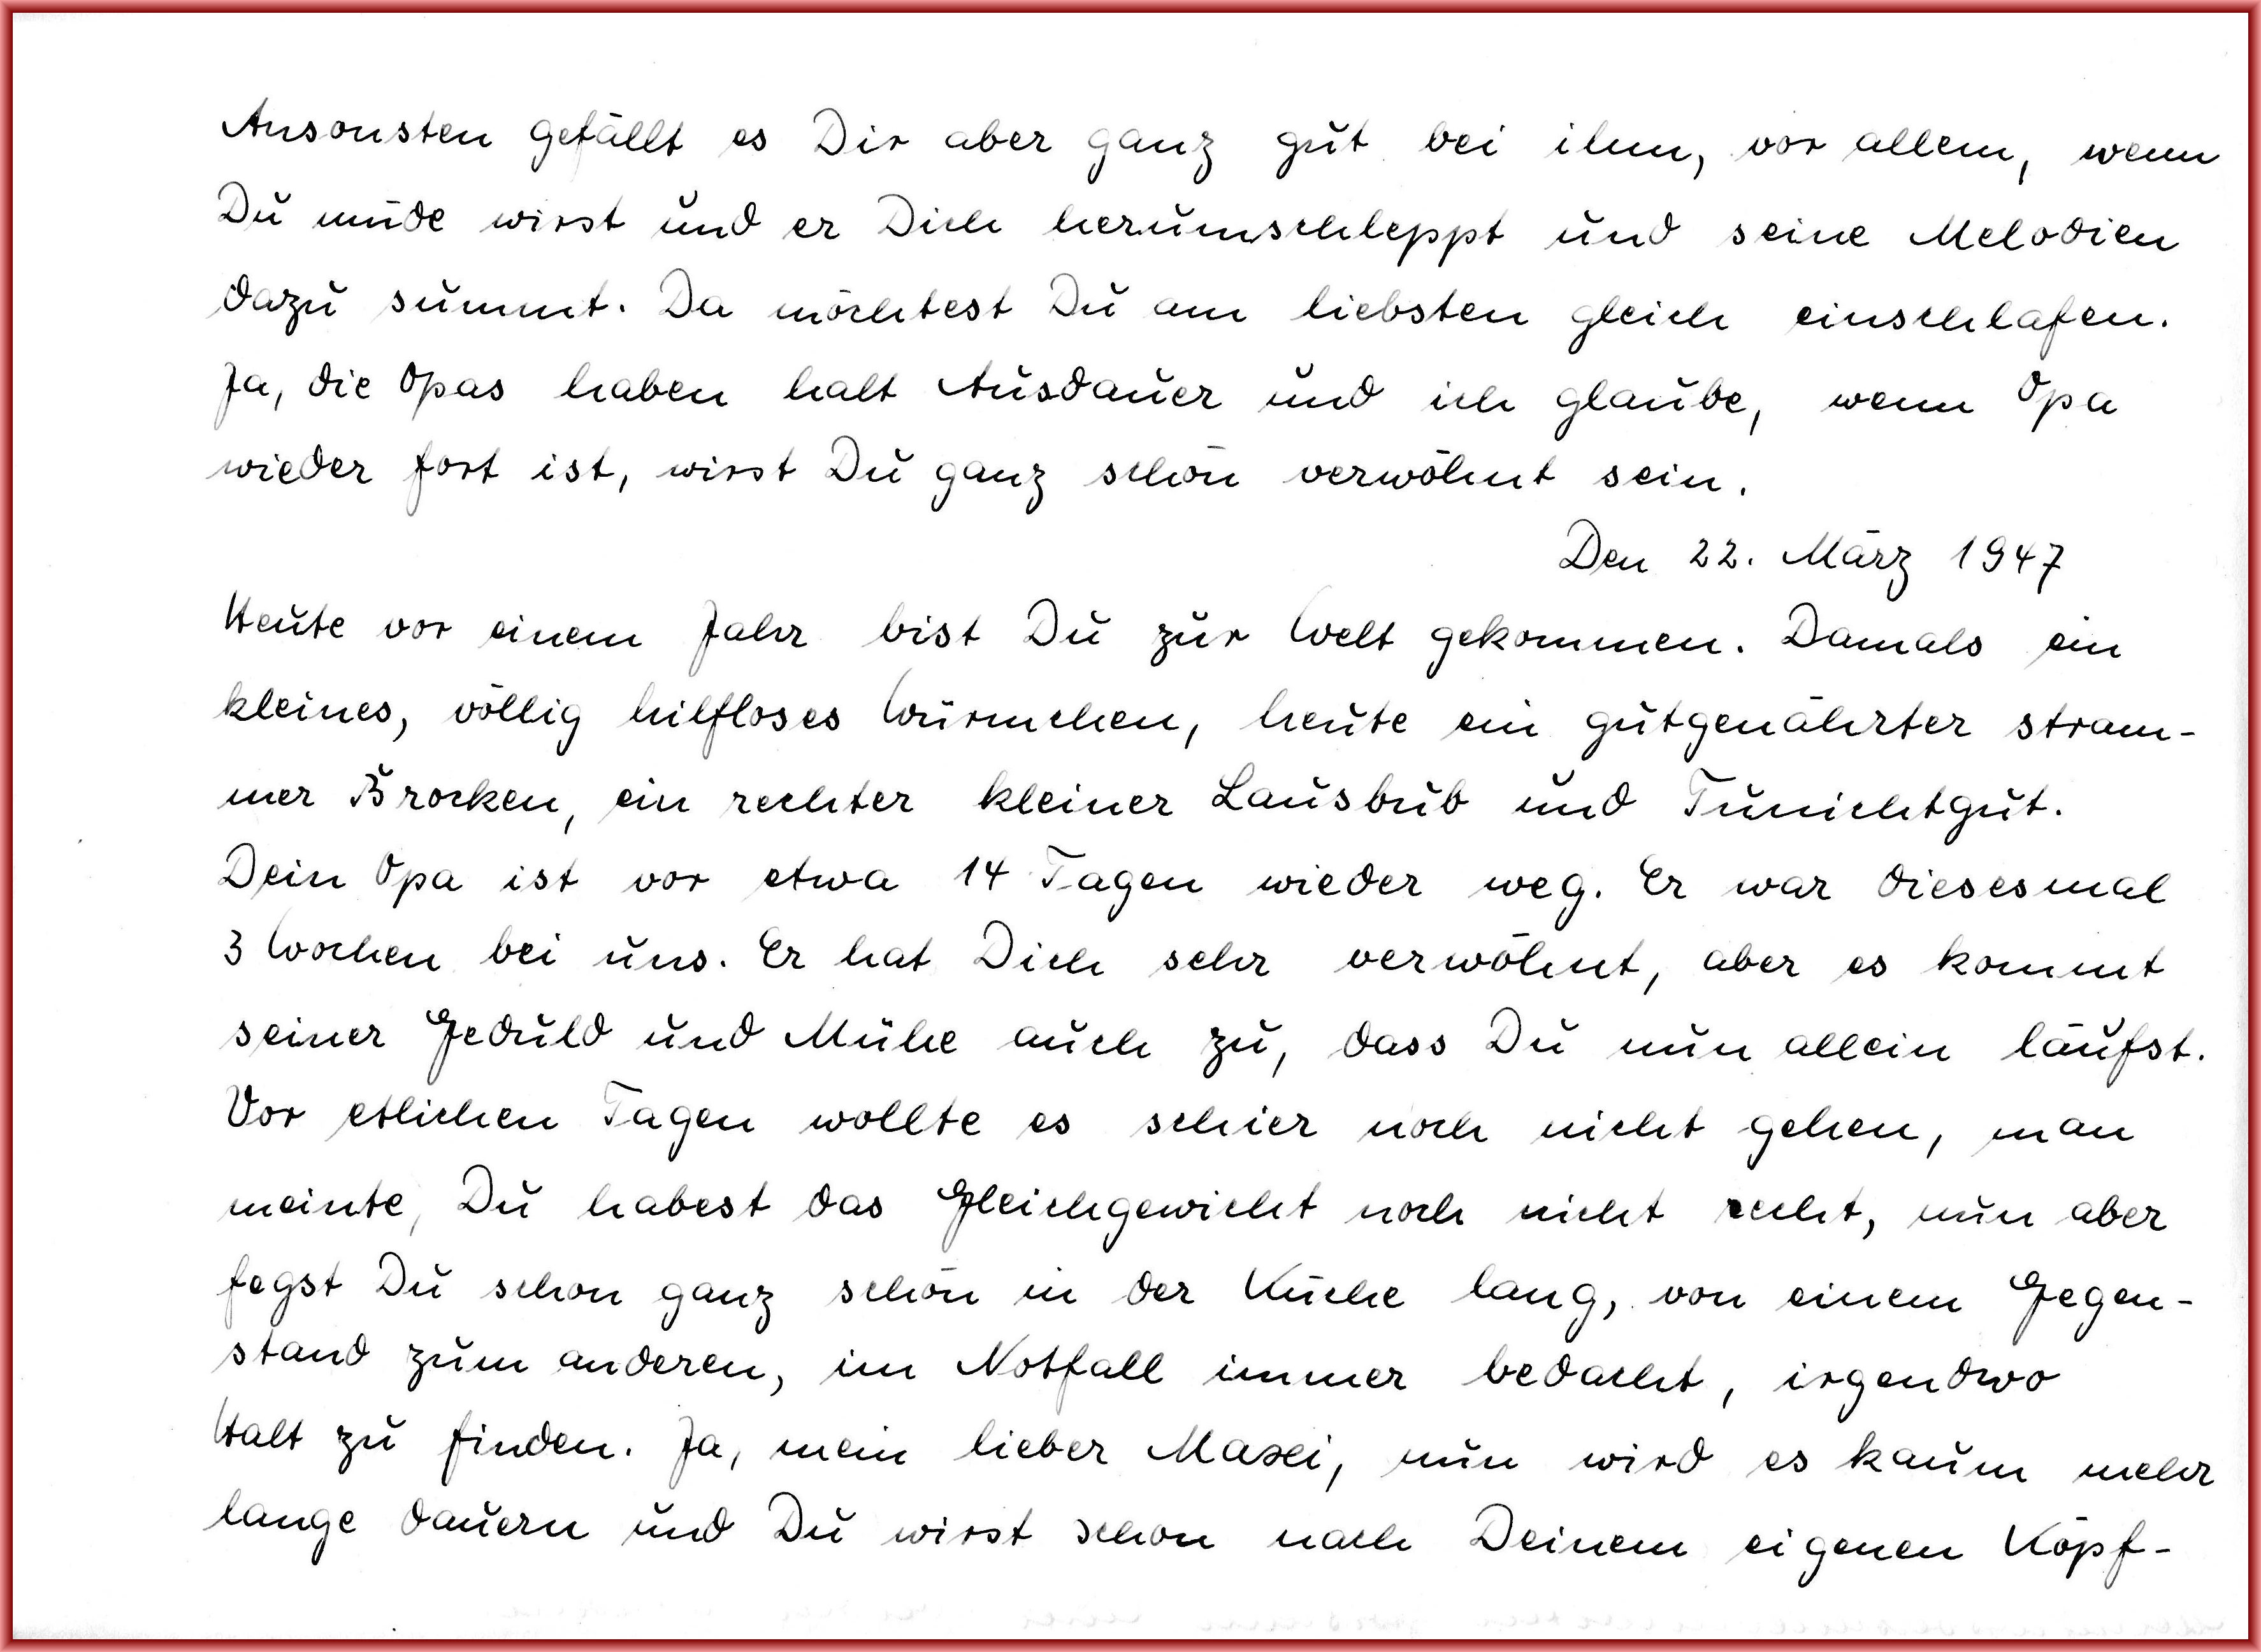 Ansonsten gefällt es Dir aber ganz gut bei ihm, vor allem, wenn
Du müde wirst und er Dich herumschleppt und seine Melodien
dazu summt. Da möchtest Du am liebsten gleich einschlafen.
Ja, die Opas haben halt Ausdauer und ich glaube, wenn Opa
wieder fort ist, wirst Du ganz schön verwöhnt sein.
Den 22. März 1947
Heute vor einem Jahr bist Du zur Welt gekommen. Damals ein
kleines, völlig hilfloses Würmchen, heute ein gutgenährter stram-
mer Brocken, ein rechter kleiner Lausbub und Tunichtgut.
Dein Opa ist vor etwa 14 Tagen wieder weg. Er war diesesmal
3 Wochen bei uns. Er hat Dich sehr verwöhnt, aber es kommt
seiner Geduld und Mühe auch zu, dass Du nun allein läufst.
Vor etlichen Tagen wollte es schier noch nicht gehen, man
meinte, Du habest das Gleichgewicht noch nicht recht, nun aber
fegst Du schon ganz schön in der Küche lang, von einem Gegen-
stand zum anderen, im Notfall immer bedacht, irgendwo
Halt zu finden. Ja, mein lieber Maxi, nun wird es kaum mehr
lange dauern und Du wirst schon nach Deinem eigenen Köpf-